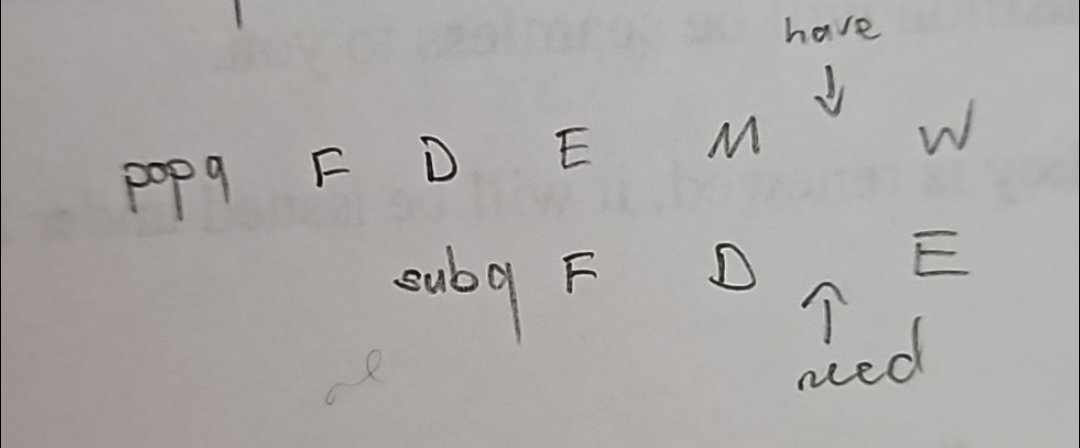 have
↓
popq F D E M W
subq F D E
↑
need